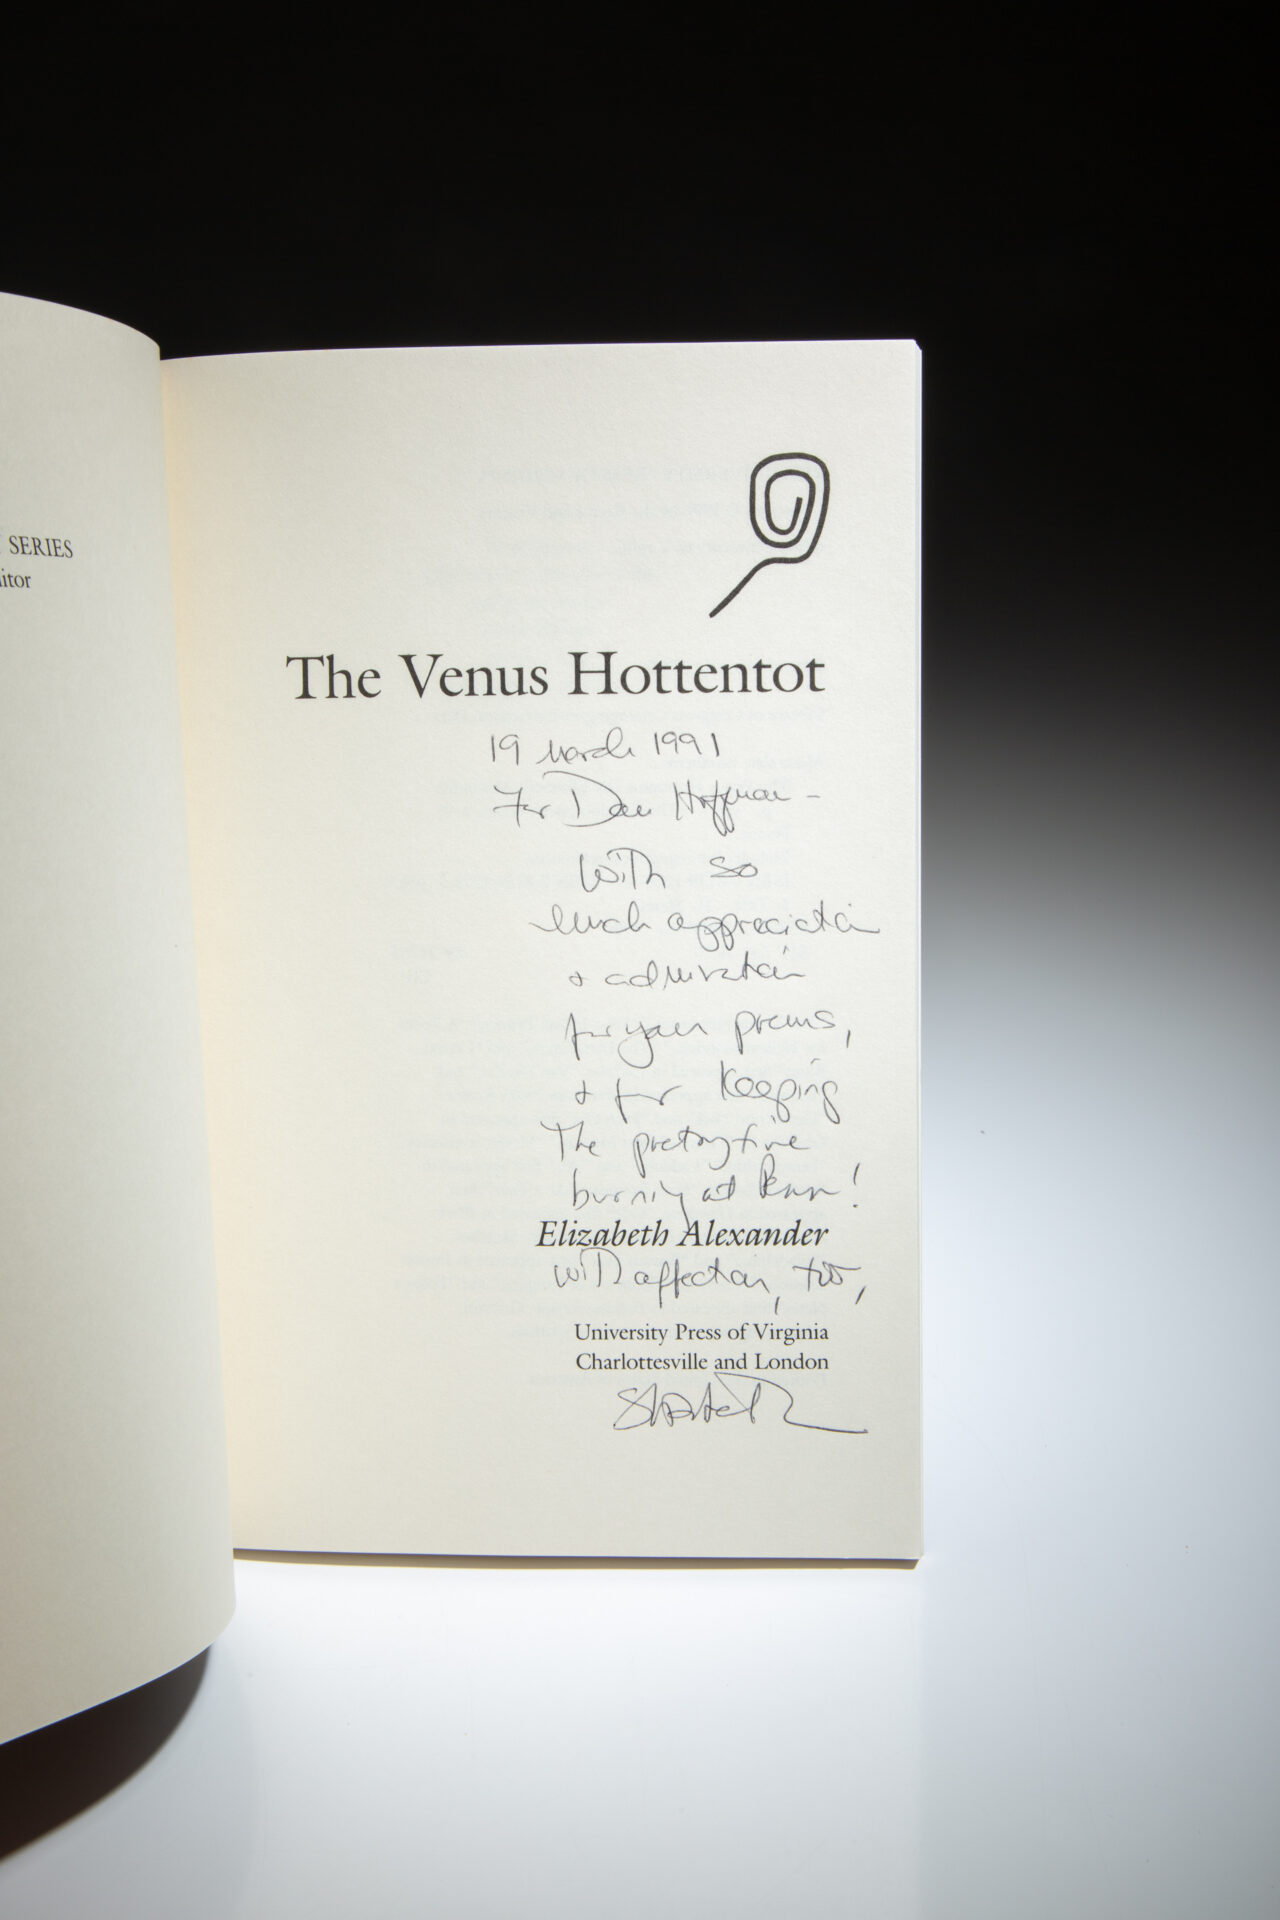 SERIES
itor
The Venus Hottentot
19 March 1991
For Dan Hoffman –
With so
much appreciation
+ admiration
for your poems,
+ for keeping
The poetry fire
burning at Penn!
Elizabeth Alexander
with affection, too,
University Press of Virginia
Charlottesville and London